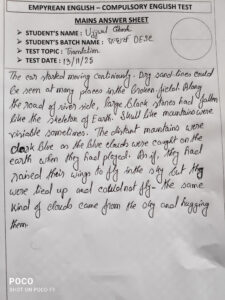 EMPYREAN ENGLISH – COMPULSORY ENGLISH TEST
MAINS ANSWER SHEET
➤ STUDENT'S NAME : Ujjwal
➤ STUDENT'S BATCH NAME :
➤ TEST TOPIC : Translation
➤ TEST DATE : 13/11/25
The car started moving continuously. Dry sand lines could
be seen at many places in the broken field. Along
the road of river side, large black stones had fallen
like the skeleton of Earth. Skull like mountains were
visiable sometimes. The distant mountains were
dark blue as the blue clouds were caught on the
earth when they had played. As if, they had
rained their wings to fly in the sky but they
were tied up and could not fly. The same
kind of clouds came from the sky and hugging
them.
POCO
SHOT ON POCO F5